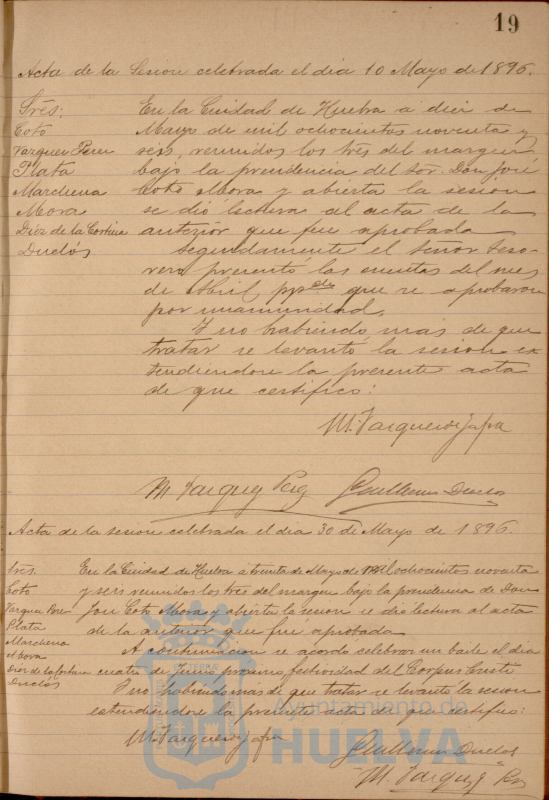 19
Acta de la Sesion celebrada el dia 10 Mayo de 1896.
Srés:
Coto
Vazquez Perez
Plata
Marchena
Mora
Diez de la Cortina
Duclós
En la Ciudad de Huelva a diez de
Mayo de mil ochocientos noventa y
seis, reunidos los srés del margen
bajo la presidencia del sor. Don José
Coto Mora y abierta la sesion
se dió lectura al acta de la
anterior que fué aprobada
Seguidamente el señor teso-
rero presentó las cuentas del mes
de Abril ppdo que se aprobaron
por unanimidad.
Y no habiendo mas de que
tratar se levantó la sesion ex-
tendiendose la presente acta
de que certifico:
M. Vazquez
M. Vazquez Guillermo Duclos
Acta de la sesion celebrada el dia 30 de Mayo de 1896.
Sres.
Coto
Vazquez Perez
Plata
Marchena
Mora
Diez de la Cortina
Duclós
En la Ciudad de Huelva á treinta de Mayo de mil ochocientos noventa
y seis reunidos los sres del margen bajo la presidencia de Don
José Coto Mora y abierta la sesion se dio lectura al acta
de la anterior que fué aprobada
A continuacion se acordo celebrar un baile el dia
cuatro de Junio proximo festividad del Corpus Cristi
Y no habiendo mas de que tratar se levantó la sesion
estendiendose la presente acta de que certifico:
M. Vazquez
Guillermo Duclos
M. Vazquez
Ayuntamiento de
HUELVA